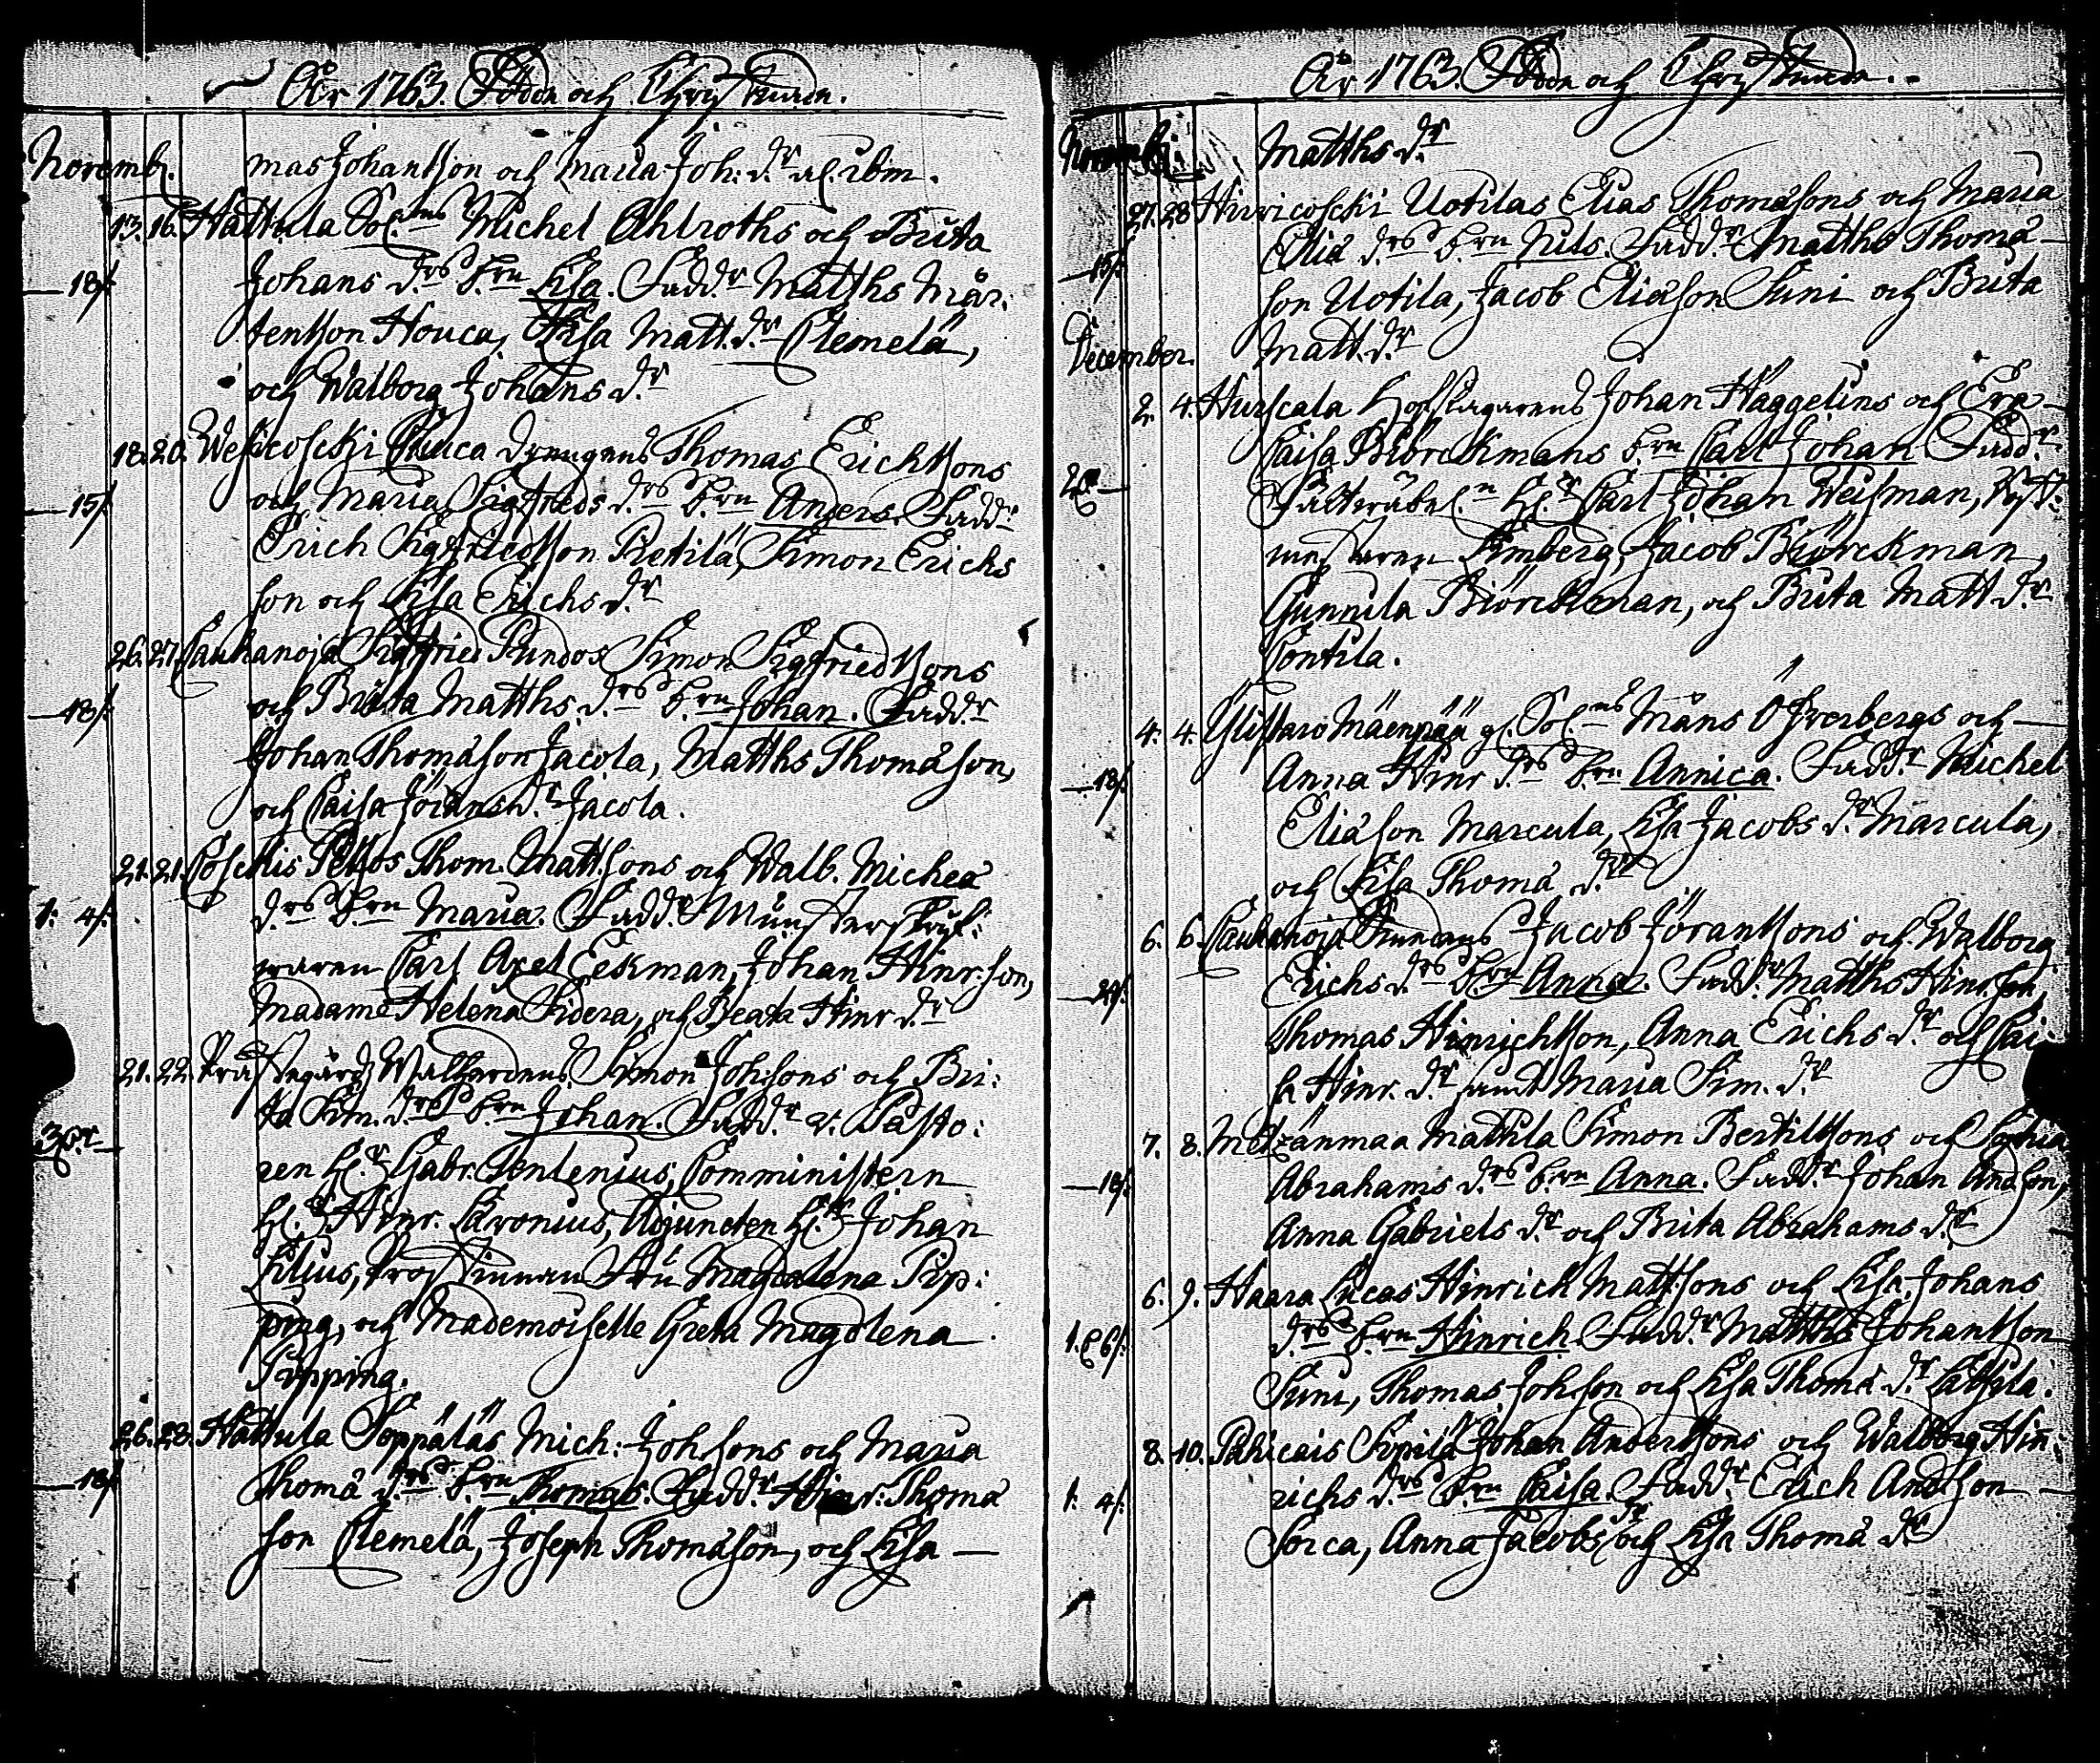 År 1763. Födde och Christnade.
Novembr. mas Johansson och Maria Joh: dr ibm.
13. 16. Hattula Sol.ns Michel Ahlroths och Brita
18/: Johans d.rs b.rn Lisa. Fadd.r Matths Mår:
tensson Houca, Lisa Matt. d.r Clemelä,
och Walborg Johans d.r
18. 20. Wesicoscki drengens Thomas Erichssons
15/: och Maria Sigfreds d.rs b.rn Anders. Fadd:r
Erich Sigfredsson Pietilä, Simon Erichs
son och Lisa Erichs d.r
26. 27. Cauhanoja Sigfried Simon Sigfriedssons
18/: och Brita Matths. d.rs b.rn Johan. Fadd.r
Johan Thomäson Jacola, Matths Thomäson,
och Caisa Jörans d.r Jacola.
21. 21. Thom. Mattsons och Walb. Micheä
1: 4/: d.rs b.rn Maria. Fadd.r Münsterskrif:
waren Carl Axel Eekman, Johan Hinr:son,
Madame Helena Fidera, och Beata Hinr d.r
21. 22. Prästegårds Simon Johssons och Bri:
ta Sim. d.rs b.rn Johan. Fadd.r v. Pasto:
ren H.r Gabr. Tenlenius, Comministern
H.r Hinr. Caronius, Adjuncten H.r Johan
Lilius, Prostinnan Fru Magdalena Pip:
ping, och Mademoiselle Greta Magdlena
Pipping.
26. 28. Hattula Soppäläs Mich: Johsons och Maria
18/: Thomä d.rs b.rn Thomas. Fadd.r Hinr: Thomä
son Clemelä, Joseph Thomäson, och Lisa —
År 1763. Födde och Christnade.
Novembr: Matths d.r
27. 28. Hiiricoscki Uotilas Elias Thomäsons och Maria
15/: Eliä d.rs b.rn Nils. Fadd.r Matths Thomä
son Uotila, Jacob Eliäson Suni och Brita
December. Matt. d.r
2. 4. Hurscala Hofslagarens Johan Häggelins och
Caisa Biörckmans b.rn Carl Johan Fadd.r
H.r Carl Johan Weisman,
Limberg, Jacob Biörckman,
Gunnila Biörckman, och Brita Matt d.r
Contila.
4. 4. Ylistaro Mäenpää Sol.ns Måns Öfverbergs och —
18/: Anna Hinr d.rs b.rn Annica. Fadd.r Michel
Eliäson Marcula, Lisa Jacobs d.r Marcula,
och Lisa Thomä d.r
6. 6. Cauhanoja Jacob Jöranssons och Walborg
24/: Erichs d.rs b.rn Anna. Fadd.r Matths Hinr.son,
Thomas Hinrichsson, Anna Erichs d.r och Cai
sa Hinr. d.r samt Maria Sim. d.r
7. 8. Metzänmaa Mattila Simon Bertilssons och Sophia
18/: Abrahams d.rs b.rn Anna. Fadd.r Johan Andson,
Anna Gabriels d.r och Brita Abrahams d.r
6. 9. Haara Lucas Hinrich Mattsons och Lisa Johans
d.rs b.rn Hinrich Fadd.r Matths Johansson
Suni, Thomas Johsson och Lisa Thomä d.r
8. 10. Pahicais Johan Anderssons och Walborg Hin:
1: 4/: richs d.rs b.rn Caisa. Fadd.r Erich Andsson —
Sorca, Anna Jacobs d.r och Lisa Thomä d.r